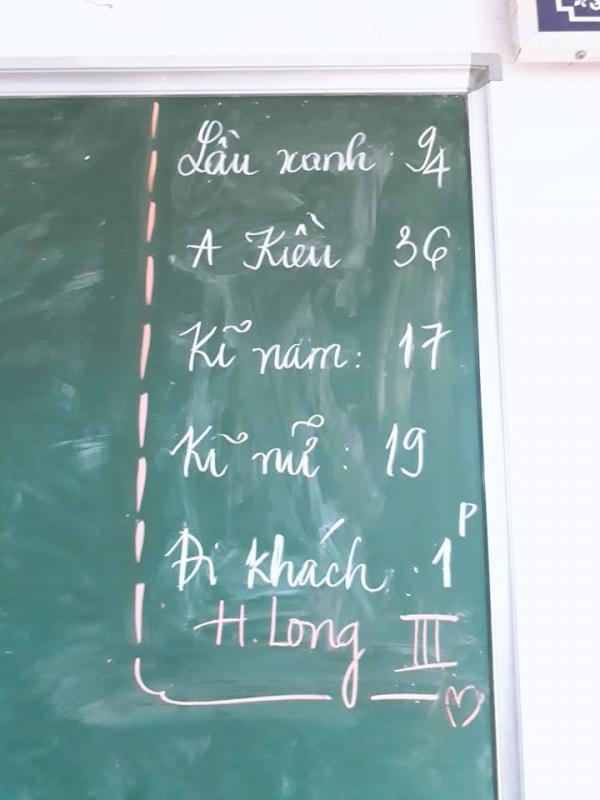 Lầu xanh : 94
A Kiều 36
Kĩ nam : 17
Kĩ nữ : 19
Đi khách : 1P
H. Long III